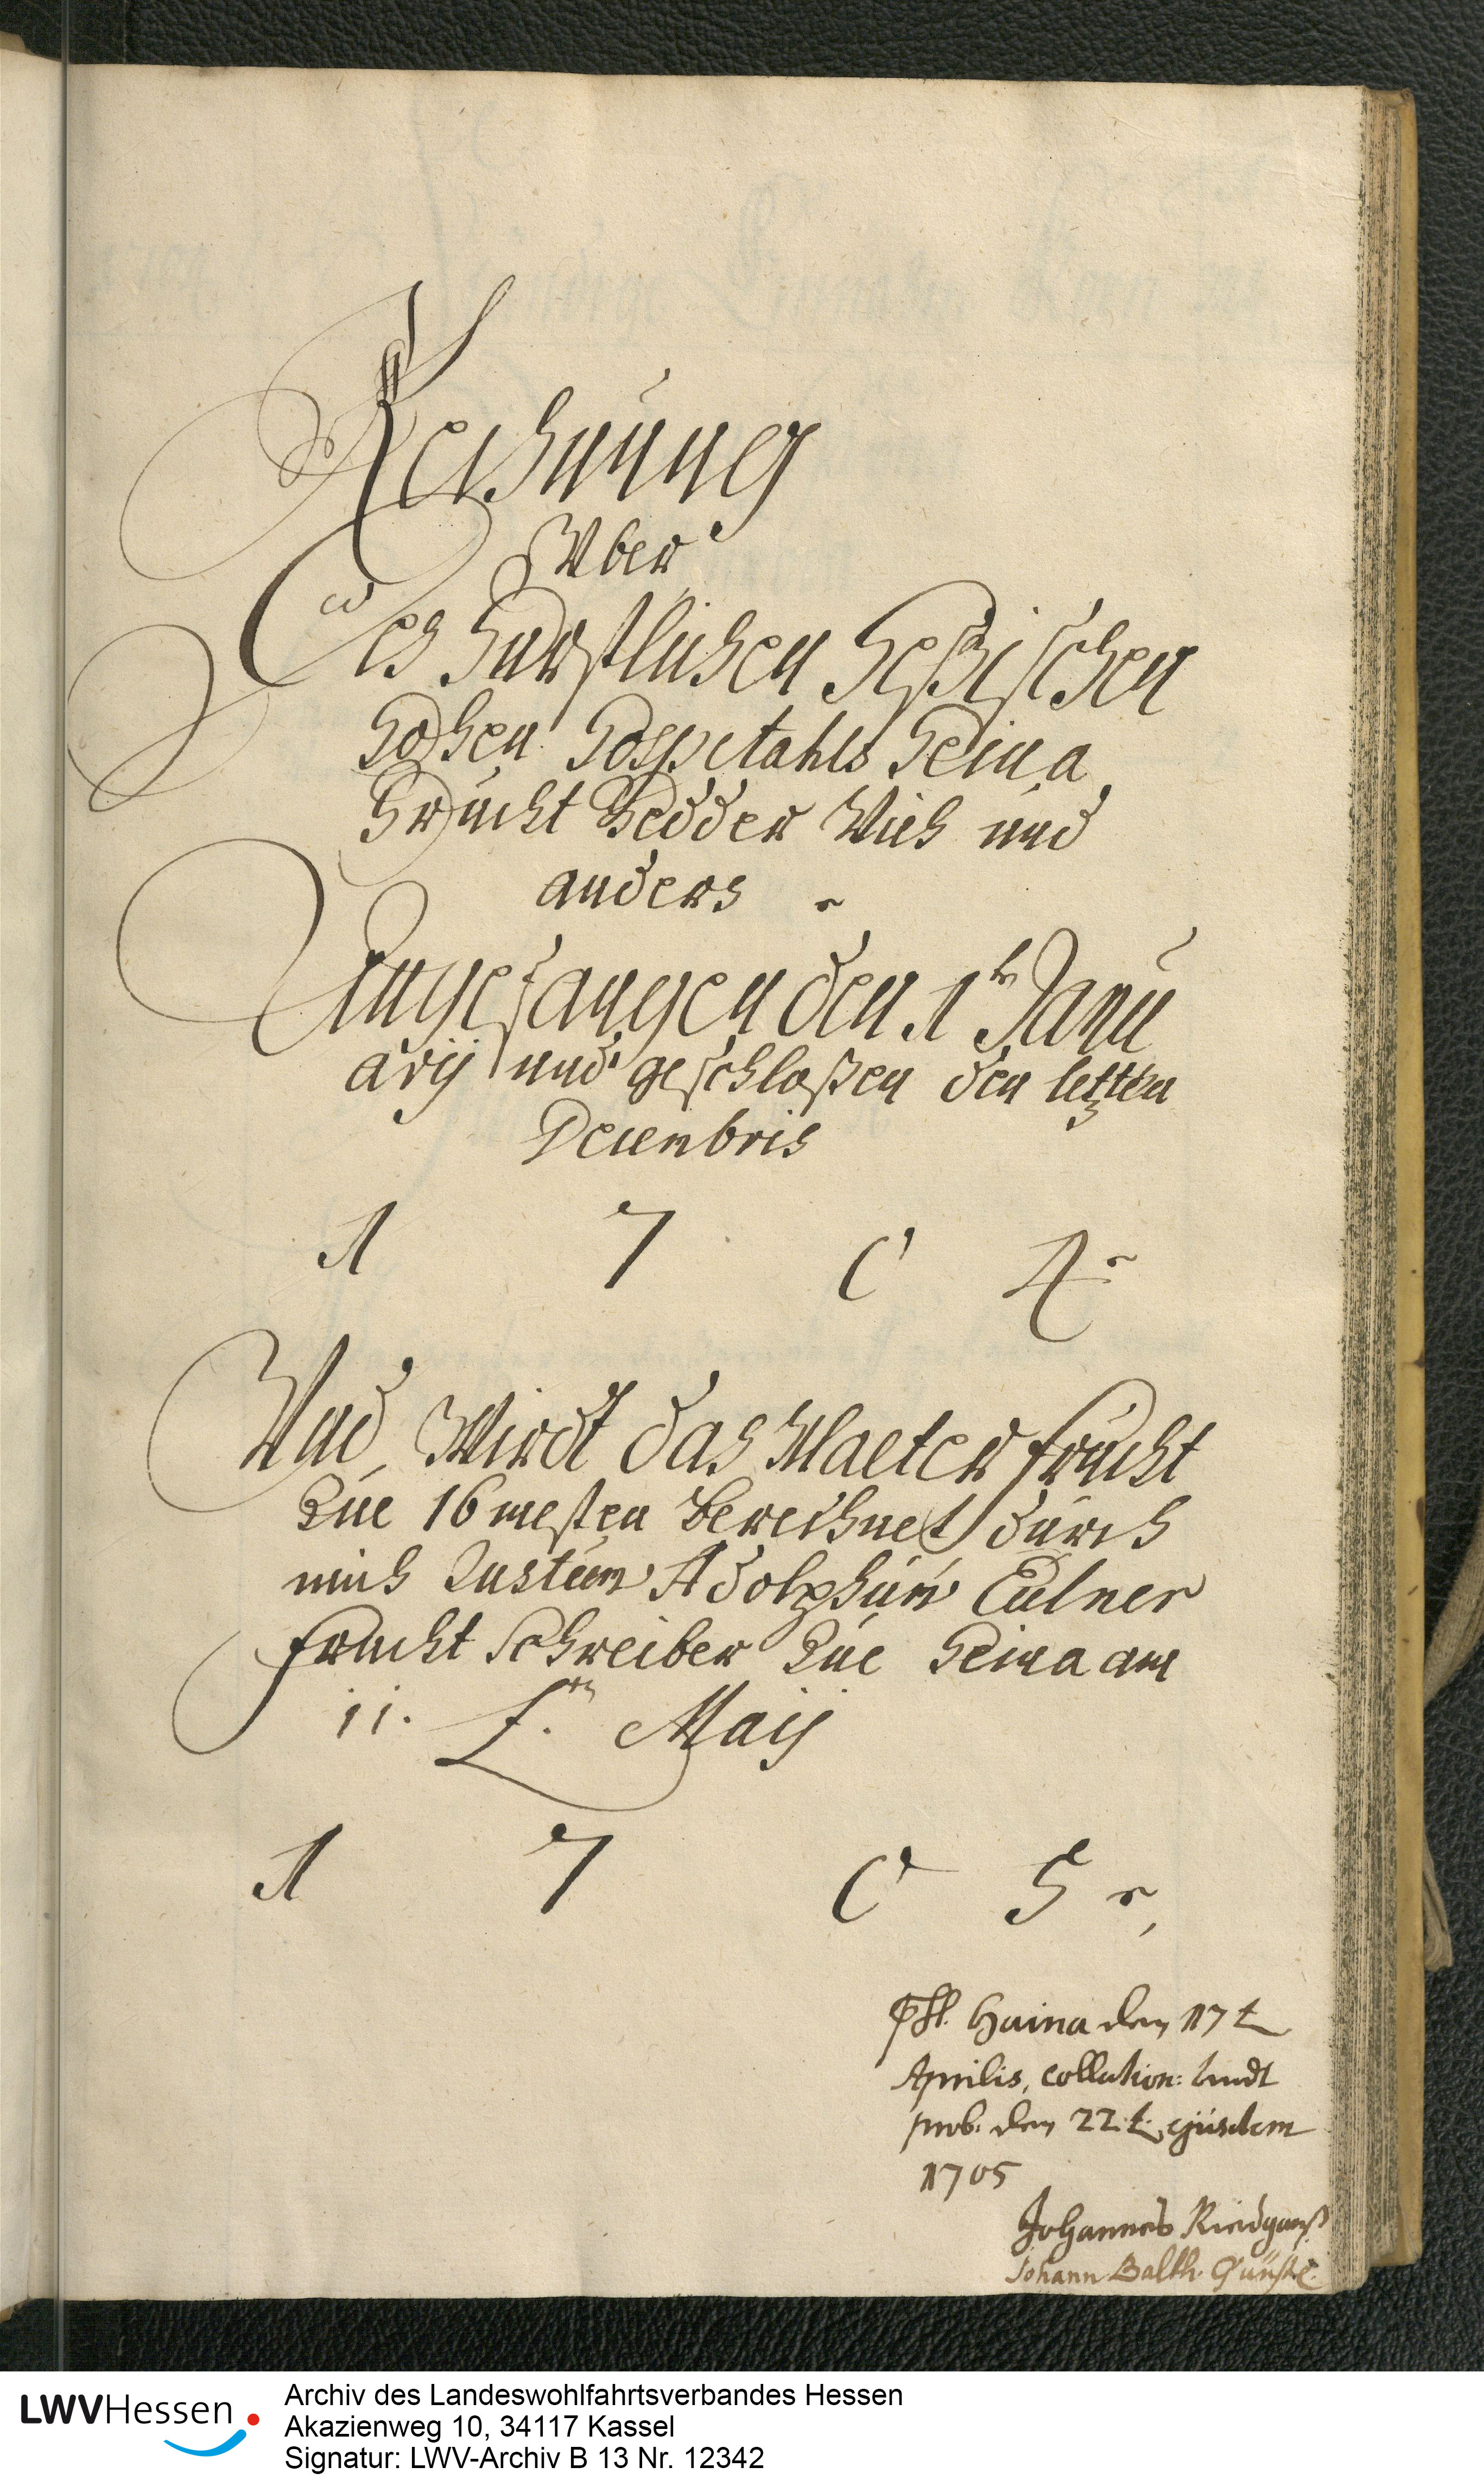 Rechnung
Vber
Des Furstlichen Heßischen
Hohen Hospitahls Heina
Frücht Fedder Vieh und
anders
Angefangen den 1t Janu
arij und geschloßen den letzten
Decembris
1 7 0 4
Vnd Wirdt das Malter frücht
Zue 16 mesten berechnet dürch
mich Justum Adolphüm Eülner
frücht Schreiber Zue Heina am
11. t. Maij
1 7 0 5
Haina den 17t
Aprilis, collation: undt
prob. den 22.t. ejüsdem
1705
Johannes
Johann Balth.
LWVHessen
Archiv des Landeswohlfahrtsverbandes Hessen
Akazienweg 10, 34117 Kassel
Signatur: LWV-Archiv B 13 Nr. 12342